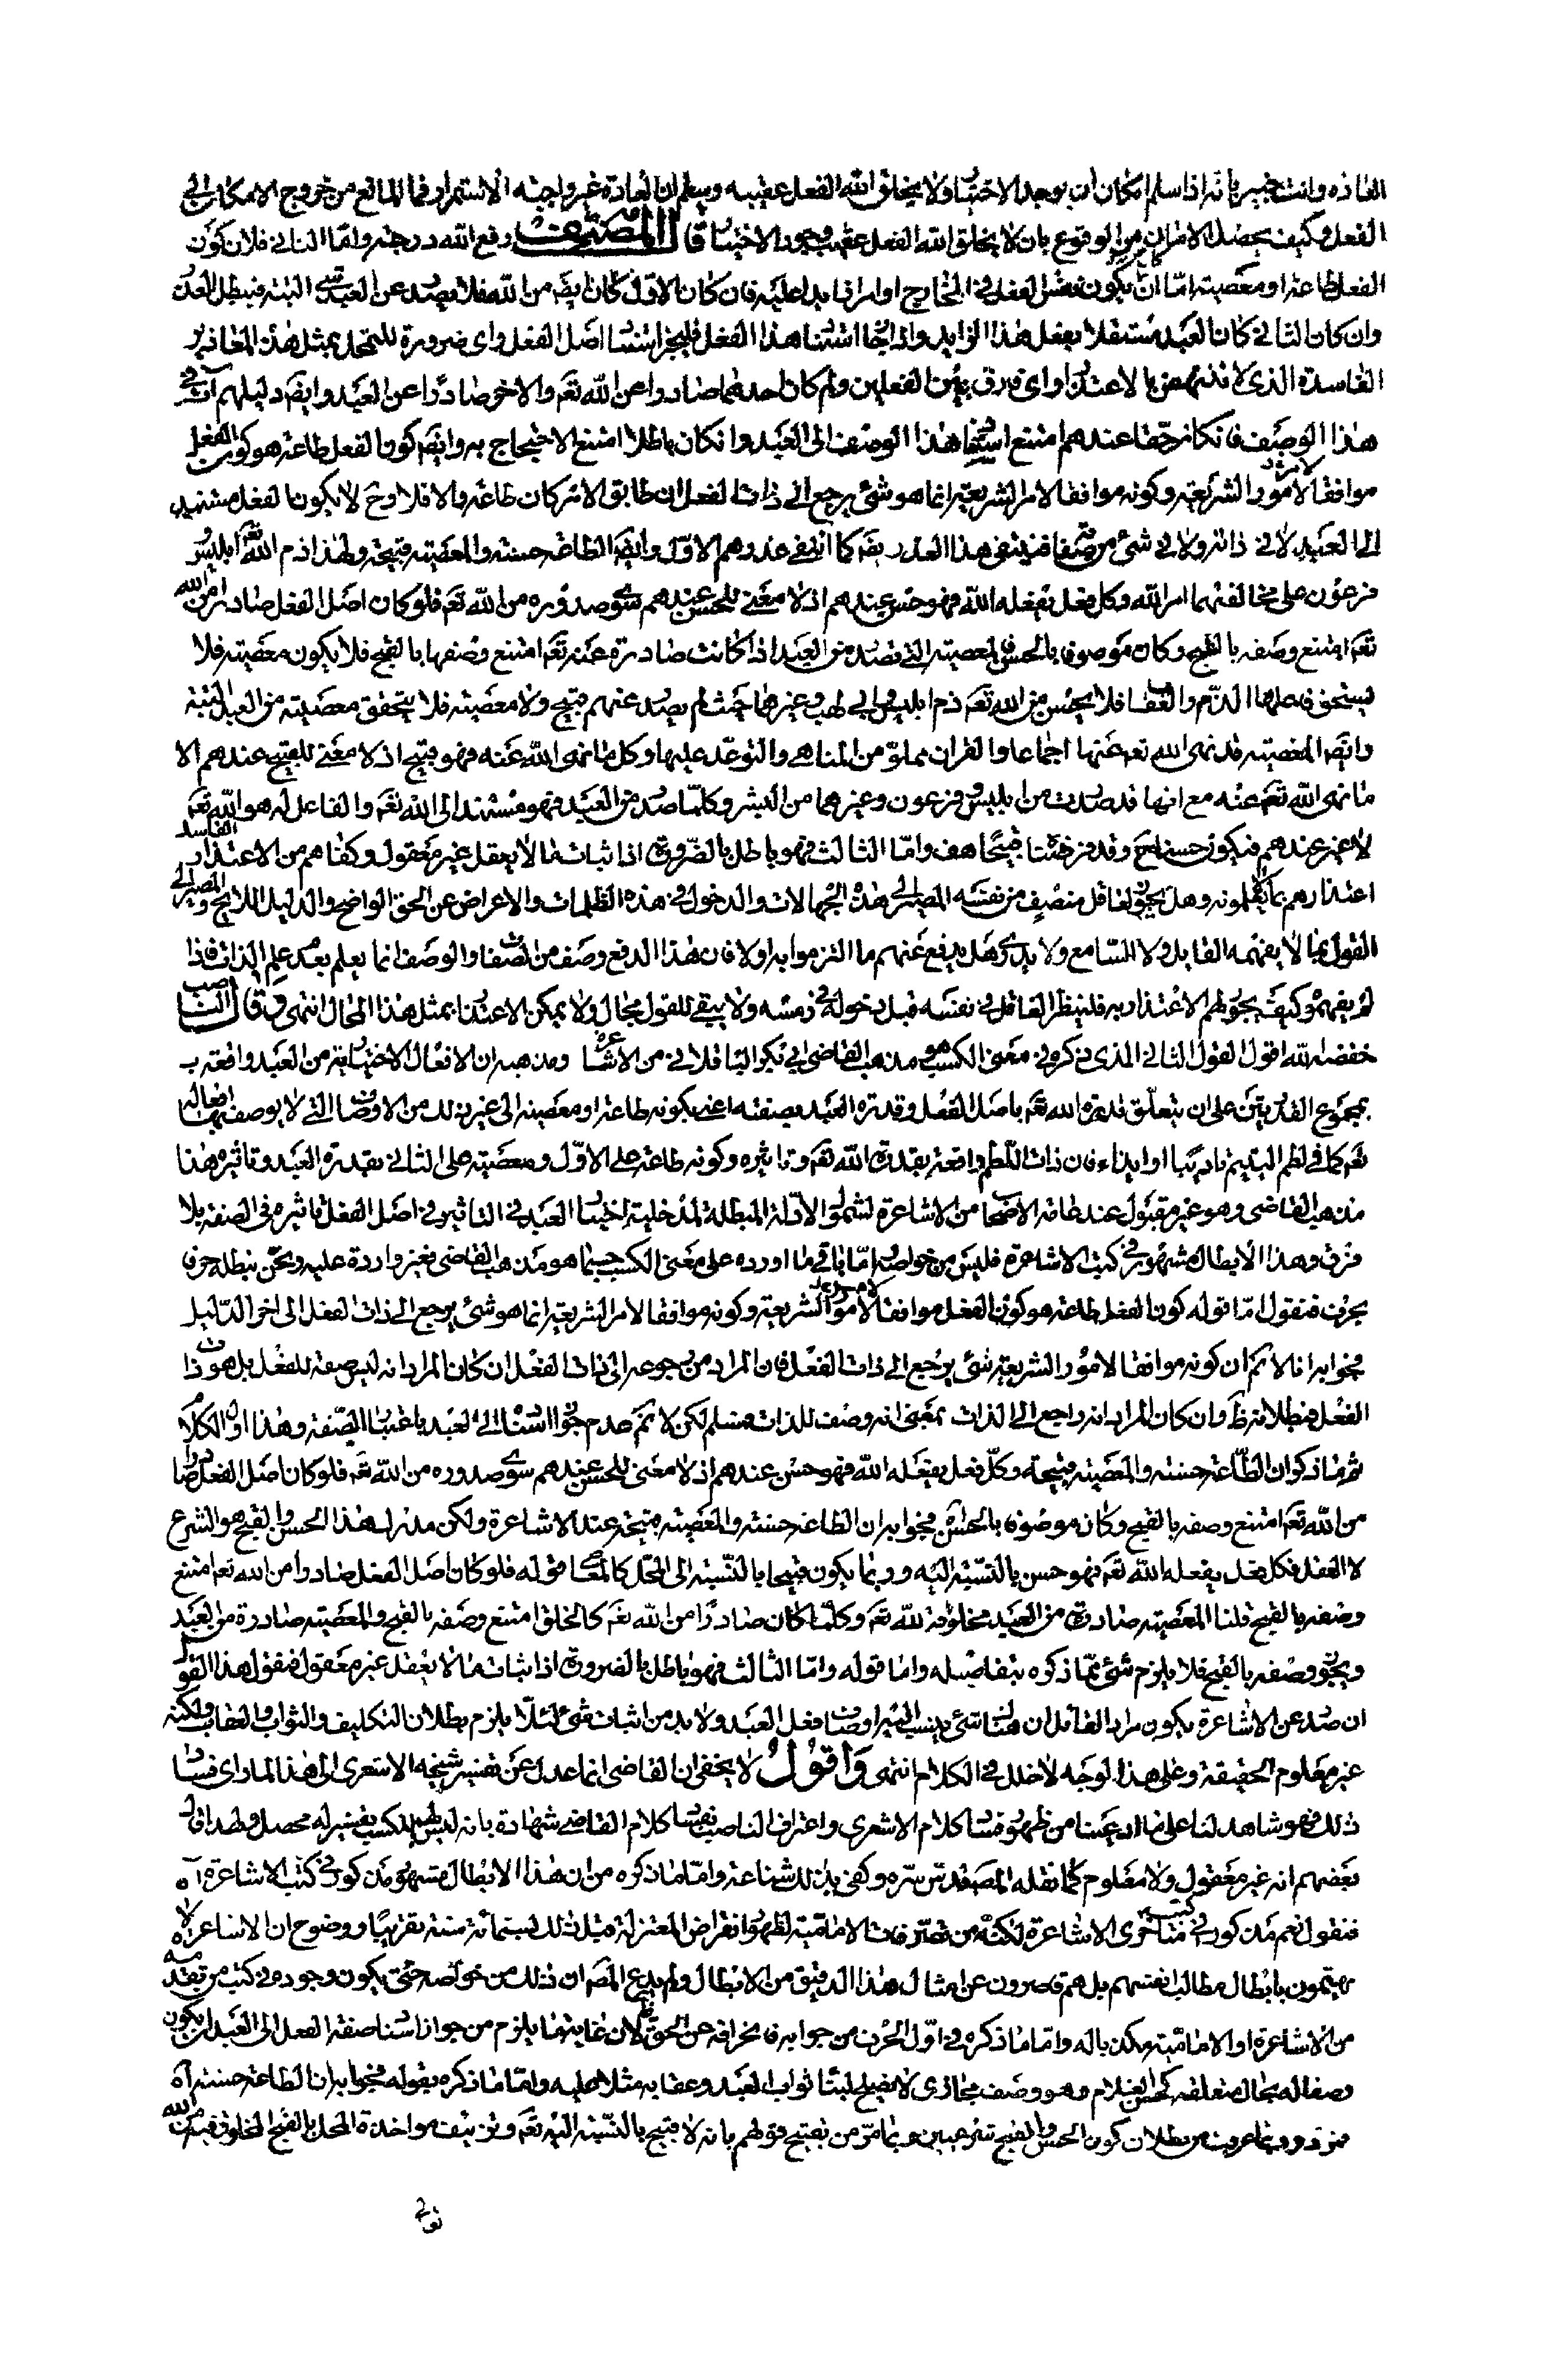 العادة وانت خبير بانه اذا سلم امكان ان يوجد الاختيار ولا يخلق الله الفعل عقيبه وسلم ان العادة غير واجبة الاستمرار فما المانع من خروج الامكان الى
الفعل وكيف يحصل الامان من الوقوع بان لا يخلق الله الفعل عقيب وجود الاختيار قال المصنف رفع الله درجته واما الثاني فلان كون
الفعل طاعة او معصية اما ان يكون نفس الفعل في الخارج او امرا زايدا عليه فان كان الاول كان ايضه من الله فلا يصدر عن العبد شي البته فيبطل العذر
وان كان الثاني كان العبد مستقلا بفعل هذا الزايد واذا جاز استناد هذا الفعل فليجز استناد اصل الفعل واى ضرورة للتمحل بمثل هذه المعاذير
الفاسدة الذي لا تنهض بالاعتذار واى فرق بين الفعلين ولم كان احدهما صادرا عن الله تعه والاخر صادرا عن العبد وايضه دليلهم آت في
هذا الوصف فان كان حقا عندهم امتنع استناد هذا الوصف الى العبد وان كان باطلا امتنع الاحتجاج به وايضه كون الفعل طاعة هو كون الفعل
موافقا لامور الشريعة وكونه موافقا لامر الشريعة انما هو شئ يرجع الى ذات الفعل ان طابق الامر كان طاعة والا فلا وح لا يكون الفعل مستندا
الى العبد لا في ذاته ولا في شئ من صفاته فينتفى هذا العذر ايضه كما انتفى عذرهم الاول وايضه الطاعة حسنة والمعصية قبيحة ولهذا ذم الله تعه ابليس و
فرعون على مخالفتهما امر الله وكل فعل يفعله الله فهو حسن عندهم اذ لا معنى للحسن عندهم سوى صدوره من الله تعه فلو كان اصل الفعل صادرا من الله
تعه امتنع وصفه بالقبح وكان موصوفا بالحسن فالمعصية التي تصدر من العبد اذا كانت صادرة عنه تعه امتنع وصفها بالقبح فلا يكون معصية فلا
يستحق فاعلها الذم والعقاب فلا يحسن من الله تعه ذم ابليس وابي لهب وغيرهما حيث لم يصدر عنهم قبيح ولا معصية فلا يتحقق معصية من العبد البتة
وايضه المعصية قد نهى الله تعه عنها اجماعا والقران مملو من المناهي والتوعد عليها وكل ما نهى الله عنه فهو قبيح اذ لا معنى للقبيح عندهم الا
ما نهى الله تعه عنه مع انها قد صدرت من ابليس وفرعون وغيرهما من البشر وكلما صدر من العبد فهو مستند الى الله تعه والفاعل له هو الله تعه
لا غير عندهم فيكون حسنا ح وقد فرضناه قبيحا هف واما الثالث فهو باطل بالضرورة اذ اثبات ما لا يعقل غير معقول وكفاهم من الاعتذار الفاسد
اعتذارهم بما لا يعلمونه وهل يجوز لعاقل منصف من نفسه المصير الى هذه الجهالات والدخول في هذه الظلمات والاعراض عن الحق الواضح والدليل اللايح والمصير الى
القول بما لا يفهمه القايل ولا السامع ولا يدرى هل يدفع عنهم ما التزموا به او لا فان هذا الدفع وصف من الصفات والوصف انما يعلم بعد علم الذات فاذا
لم يفهموه كيف يجوز لهم الاعتذار به فلينظر العاقل في نفسه قبل دخوله في رمسه ولا يبقى للقول مجال ولا يمكن الاعتذار بمثل هذا المحال انتهى وقال الناصب
خفضه الله اقول القول الثاني الذي ذكره في معنى الكسب هو مذهب القاضي ابي بكر الباقلاني من الاشاعرة ومذهبه ان الافعال الاختيارية من العبد واقعة ب
مجموع القدرتين على ان يتعلق قدرة الله تعه باصل الفعل وقدرة العبد بصفته اعنى بكونه طاعة او معصية الى غير ذلك من الاوصاف التي لا يوصف بها افعاله
تعه كما في لطم اليتيم تاديبا او ايذاء فان ذات اللطم واقعة بقدرة الله تعه وتاثيره وكونه طاعة على الاول ومعصية على الثاني بقدرة العبد وتاثيره هذا
مذهب القاضي وهو غير مقبول عند عامة الاصحاب من الاشاعرة لشمول الادلة المبطلة لمدخلية اختيار العبد في التاثير في اصل الفعل تاثيره في الصفة بلا
فرق وهذا الابطال مشهور في كتب الاشاعرة فليس من خواصه اما باقي ما اورده على معنى الكسب حسبما هو مذهب القاضي فغير واردة عليه ونحن نبطله حرفا
بحرف فنقول اما قوله كون الفعل طاعة هو كون الفعل موافقا لامور الشريعة وكونه موافقا لامر الشريعة انما هو شئ يرجع الى ذات الفعل الى اخر الدليل
فجوابه انا لا نم ان كونه موافقا لامور الشريعة شئ يرجع الى ذات الفعل فان المراد من رجوعه الى ذات الفعل ان كان المراد انه ليس صفة للفعل بل هو ذات
الفعل فبطلانه ظ وان كان المراد انه راجع الى الذات بمعنى انه وصف للذات فمسلم لكن لا نم عدم جواز استناده الى العبد باعتبار الصفة وهذا اول الكلام
ثم ما ذكر ان الطاعة حسنة والمعصية قبيحة وكل فعل يفعله الله فهو حسن عندهم اذ لا معنى للحسن عندهم سوى صدوره من الله تعه فلو كان اصل الفعل صادرا
من الله تعه امتنع وصفه بالقبح وكان موصوفا بالحسن فجوابه ان الطاعة حسنة والمعصية قبيحة عند الاشاعرة ولكن مدرك هذا الحسن والقبح هو الشرع
لا العقل فكل فعل يفعله الله تعه فهو حسن بالنسبة اليه وربما يكون قبيحا بالنسبة الى المحل كالمعاصي فقوله فلو كان اصل الفعل صادرا من الله تعه امتنع
وصفه بالقبح قلنا المعصية صادرة من العبد مخلوقة لله تعه وكلما كان صادرا من الله تعه كالخلق امتنع وصفه بالقبح والمعصية صادرة من العبد
ويجوز وصفه بالقبح فلا يلزم شئ مما ذكره بتفاصيله واما قوله واما الثالث فهو باطل بالضرورة اذ اثبات ما لا يعقل غير معقول فنقول هذا القول
ان صدر عن الاشاعرة يكون مراد القائل ان هناك شئ ينسب اليه اوصاف فعل العبد ولا بد من اثبات شئ لئلا يلزم بطلان التكليف والثواب والعقاب ولكنه
غير معلوم الحقيقة وعلى هذا الوجه لا خلل في الكلام انتهى واقول لا يخفى ان القاضي انما عدل عن تفسير شيخه الاشعرى الى هذا لما راى فساد
ذلك فهو شاهد لنا على ما ادعينا من ظهور فساد كلام الاشعرى واعتراف الناصب بفساد كلام القاضي شهادة بانه ليس للكسب تفسير له محصل ولهذا قال
بعضهم انه غير معقول ولا معلوم كما نقله المصنف قدس سره وكفى بذلك شناعة واما ما ذكره من ان هذا الابطال مشهور مذكور في كتب الاشاعرة آه
فنقول نعم مذكور في كتب متاخرى الاشاعرة لكنه من تصرفات الامامية لظهور انقراض المعتزلة قبل ذلك بسبعمائة سنة تقريبا ووضوح ان الاشاعرة لا
يهتمون بابطال مطالب انفسهم بل هم قاصرون عن امثال هذا الدقيق من الابطال ولم يدع المصه ان ذلك من خواصه حتى يكون وجوده في كتب من تقدمه
من الاشاعرة او الامامية مكذبا له واما ما ذكره في اول الحرف من جوابه فانحرافه عن الحق ظ لان غاية ما يلزم من جواز استناد صفة الفعل الى العبد ان يكون
وصفا له بحال متعلقه كحسن الغلام وهو وصف مجازى لا يصلح لبناء ثواب العبد وعقابه مثلا عليه واما ما ذكره بقوله فجوابه ان الطاعة حسنة آه
فمردود بما عرفت من بطلان كون الحسن والقبح شرعيين وبما مر من تقبيح قولهم بانه لا قبيح بالنسبة اليه تعه وتزييف مواخذة المحل بالقبح المخلوق فيه من الله